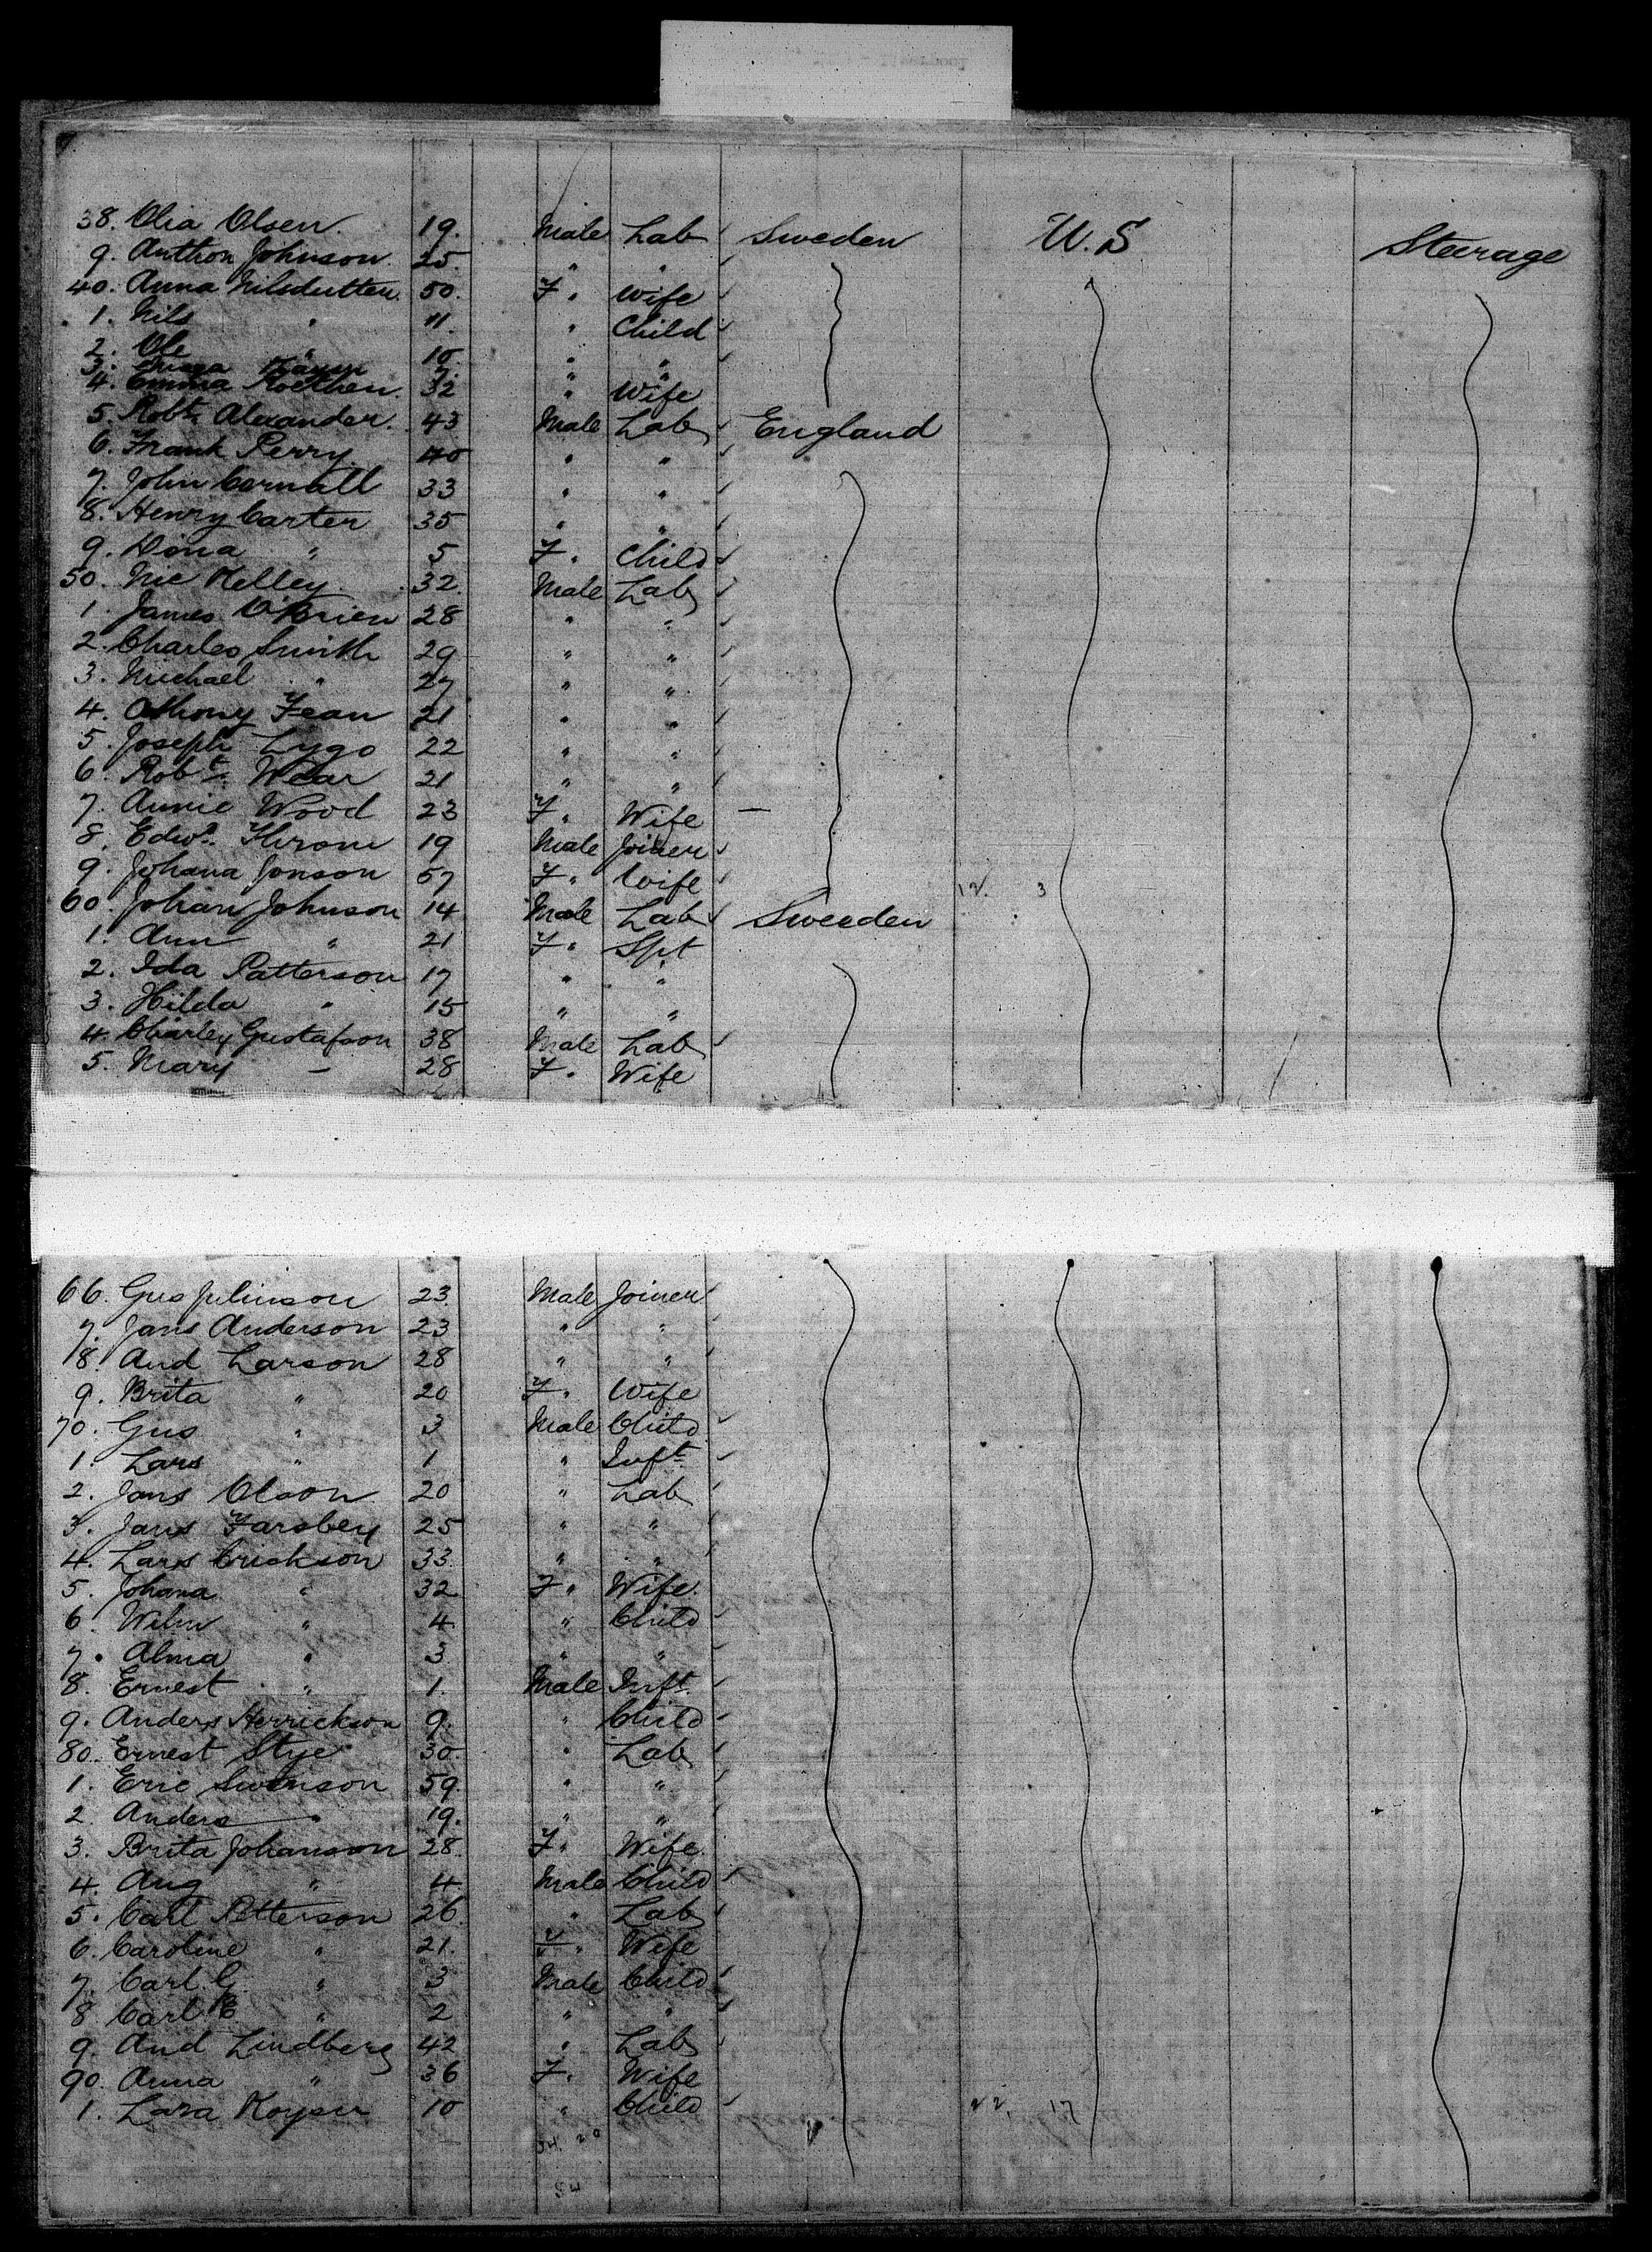 38. Olia Olsen. 19. Male Lab Sweden U.S Steerage
9. Anthon Johnson. 25. " "
40. Anna Nilsdutter. 50. F. Wife
1. Nils " 11. " Child
2. Ole " 10. " "
3. 7. " "
4. Emma 32 " Wife
5. Robt. Alexander. 43 Male Lab England
6. Frank Perry. 40 " "
7. John Cornall 33 " "
8. Henry Carter 35 " "
9. Dona " 5 F. Child
50. Nic Kelley. 32. Male Lab
1 James O'Brien 28 " "
2. Charles Smith 29 " "
3. Michael " 27 " "
4. Othony Fean 21 " "
5. Joseph Lygo 22 " "
6. Robt. Wear 21 " "
7. Annie Wood 23 F. Wife —
8. Edwd. 19 Male Joiner
9. Johana Jonson 57 F. Wife 12. 3
60. Johan Johnson 14 Male Lab Sweeden
1. Ann " 21 F. Spt
2. Ida Patterson 17 " "
3. Hilda " 15 " "
4. Charley Gustafson 38 Male Lab
5. Mary — 28 F. Wife
66. Gus Johnson 23. Male Joiner
7. Jans Anderson 23 " "
8. And Larson 28 " "
9. Brita " 20 F. Wife
70. Gus " 3 Male Child
1. Lars " 1 " Inft
2. Jans Olson 20 " Lab
3. Jans Farsbey 25 " "
4. Lars Erickson 33. " "
5. Johana " 32 F. Wife.
6. Wilm " 4 " Child
7. Alma " 3 " "
8. Ernest " 1. Male Inft.
9. Anders Herrickson 9. " Child
80. Ernest Stye 30. " Lab
1. Eric Swenson 59. " "
2. Anders " 19. " "
3. Brita Johanson 28. F. Wife.
4. Aug " 4 Male Child
5. Carl Petterson 26. " Lab
6. Caroline " 21. F. Wife
7. Carl G. " 3 Male Child
8 Carl E " 2 " "
9. And Lindberg 42 " Lab
90. Anna " 36 F. Wife
1. Lara Koyser 10 " Child 22, 17
34. 20
54